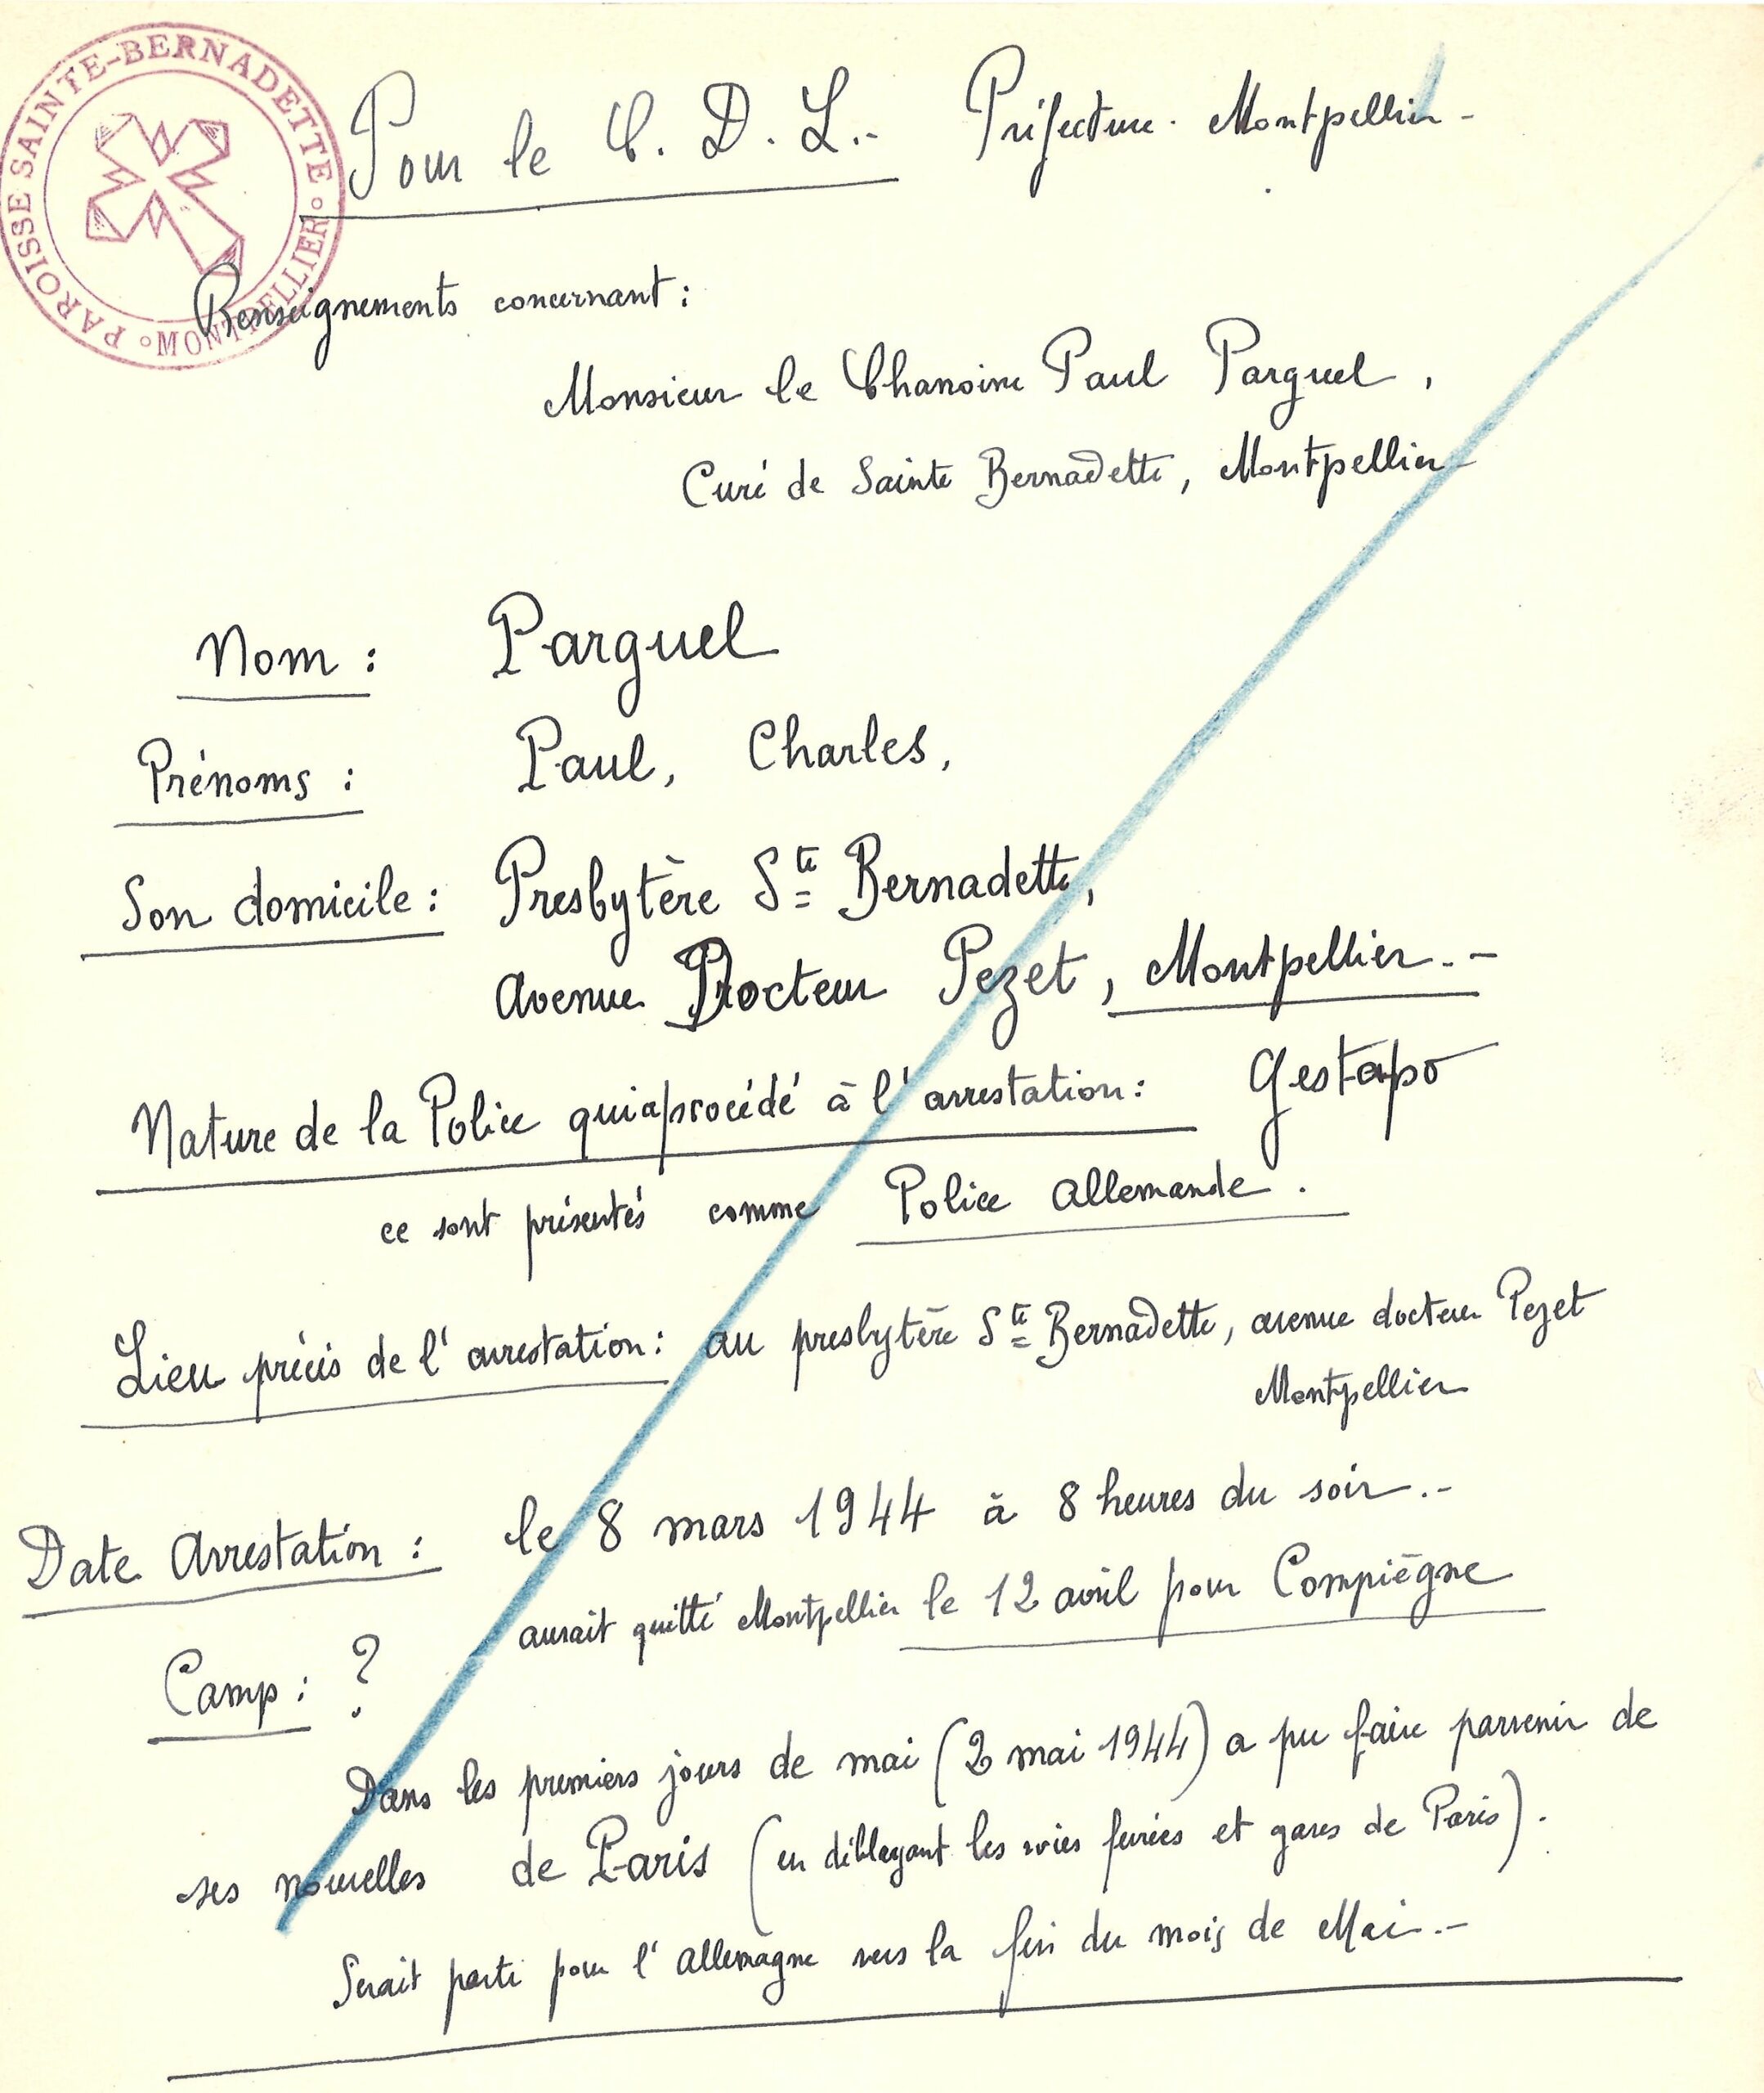 PAROISSE SAINTE-BERNADETTE
MONTPELLIER
Pour le C. D. L.- Préfecture. Montpellier -
Renseignements concernant :
Monsieur le Chanoine Paul Parguel,
Curé de Sainte Bernadette, Montpellier -
Nom : Parguel
Prénoms : Paul, Charles,
Son domicile : Presbytère Ste Bernadette,
Avenue Docteur Pezet, Montpellier. -
Nature de la Police qui a procédé à l'arrestation : Gestapo
ce sont présentés comme Police Allemande.
Lieu précis de l'arrestation : au presbytère Ste Bernadette, avenue docteur Pezet
Montpellier
Date Arrestation : le 8 mars 1944 à 8 heures du soir. -
aurait quitté Montpellier le 12 avril pour Compiègne
Camp : ?
Dans les premiers jours de mai (2 mai 1944) a pu faire parvenir de
ses nouvelles de Paris (en déblayant les voies ferrées et gares de Paris).
Serait parti pour l'Allemagne vers la fin du mois de Mai. -